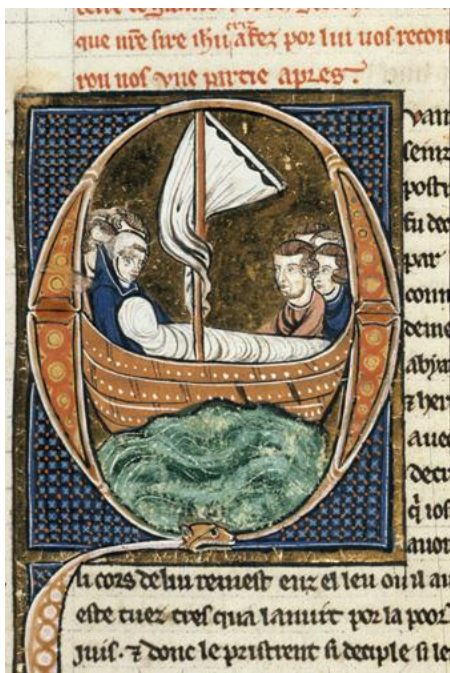 que nr̃e sire ih̃u criz a fez por lui uos recon
rou uos vne partie apres.
Van
seinz
posto
fu dec
par
coum
deme
abya
⁊ her
auec
decr
q̃ ios
auon
li cors de lui remest enz el leu ou il au
este tuez tres qua la nuit por la poor
juis. ⁊ donc le pristrent si deciple si le